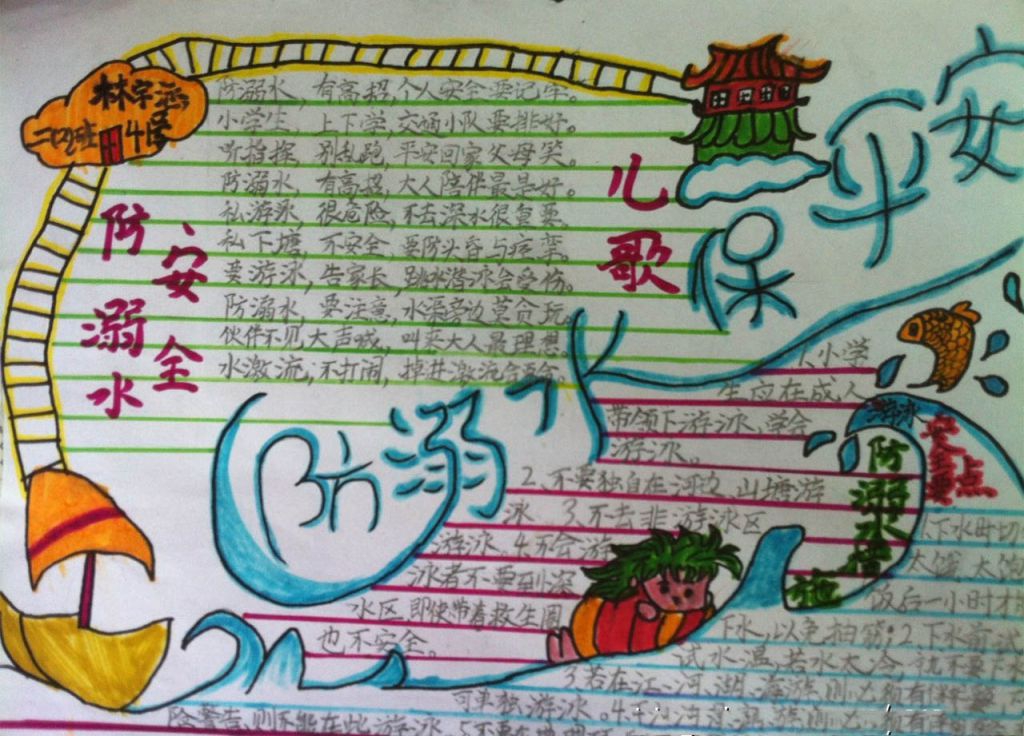 林宇
二(2)班 4号
防溺水 安全
儿歌
防溺水，有高招，个人安全要记牢。
小学生，上下学，交通小队要排好。
听指挥，别乱跑，平安回家父母笑。
防溺水，有高招，大人陪伴最是好。
私游泳，很危险，不去深水很重要。
私下塘，不安全，要防头昏与痉挛。
要游泳，告家长，跳水潜泳会受伤。
防溺水，要注意，水渠旁边莫贪玩。
伙伴不见大声喊，叫来大人最理想。
水激流，不打闹，掉进激流
防溺水 保平安
防溺水措施
1、小学
生应在成人
带领下游泳，学会
游泳。
2、不要独自在河边、山塘游
泳 3、不去非游泳区
游泳。4.不会游
泳者不要到深
水区，即使带着救生圈
也不安全。
游泳
安全要点
1.下水时切
太饿、太饱
饭后一小时才
下水，以免抽筋；2.下水前
试水温，若水太冷，就不要下水
3若在江、河、湖、海游
可单独游泳。4.
险警告，则不能在此游泳 5不要在